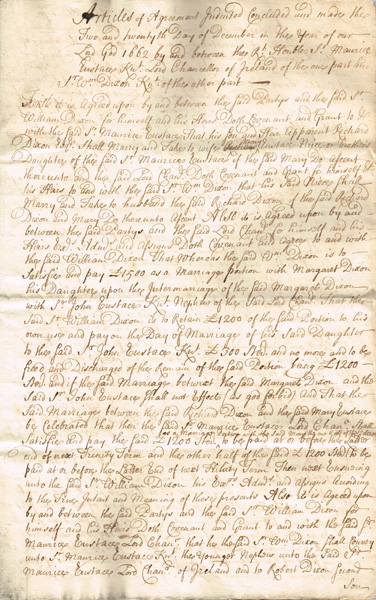 Articles of Agreement Indented Concluded and made the
Two and twentyth Day of December in the Year of our
Lord God 1662 by and between the Rt. Honble Sr. Maurice
Eustace Knt. Lord Chancellor of Ireland of the one part and
Sr. Wm. Dixon Knt. of the other part
First it is Agreed upon by and between the said Partys and the said Sr.
William Dixon for himself and his Heirs Doth Covenant and Grant to &
with the said Sr. Maurice Eustace That his son and Heir apparent Richard
Dixon Esqr. Shall Marry and Take to wife Mary Eustace
Daughter of the said Sr. Maurices Eustaces if the said Mary Do assent
thereunto and the said Lord Chanr. Doth Covenant and Grant for himself &
his Heirs to and with the said Sr. Wm. Dixon, that his said Niece shall
Marry and Take to husband the said Richard Dixon if the said Richard
Dixon and Mary Do thereunto Assent Also it is Agreed upon by and
between the said Partys and the said Lord Chanr. for himself and his
Heirs Exrs. Admrs. and Assigns Doth Covenant and Agree to and with
the said William Dixon That Whereas the said Wm. Dixon is to
Satisfie and pay £1500 as a Marriage Portion with Margaret Dixon
his Daughter upon the Intermarriage of the said Margaret Dixon
with Sr. John Eustace Knt. Nephew of the said Lord Chanr. That the
Said Sr. William Dixon do to Retain £1200 of the said Portion to his
own use and pay on the Day of Marriage of his said Daughter
to the said Sr. John Eustace Knt. £300 Sterl. and no more and to be
freed and Discharged of the Remain of the said Portion being £1200
Sterl. and if the said Marriage between the said Margaret Dixon and the
Said Sr. John Eustace shall not Effect (as god forbid) and That the
Said Marriage between the said Richard Dixon and the said Mary Eustace
be Celebrated that then the said Sr. Maurice Eustace Lord Chanr. Shall
Satisfie and pay the said £1200 Sterl. to be paid at or before the Latter
end of next Trinity Term and the other half of the said £1200 Sterl. to be
paid at or before the Latter End of next Hilary Term Then next Ensuing
unto the said Sr. William Dixon his Exrs. Admrs. and Assigns According
to the Intent and Meaning of these presents Also it is Agreed upon
by and between the said Partys and the said Sr. William Dixon for
himself and his Heirs Doth Covenant and Grant to and with the said Sr.
Maurice Eustace Lord Chanr. that he the said Sr. Wm. Dixon Shall Convey
unto Sr. Maurice Eustace Knt. the younger Nephew unto the Said Sr.
Maurice Eustace Lord Chanr. of Ireland and to Robert Dixon Second
Son